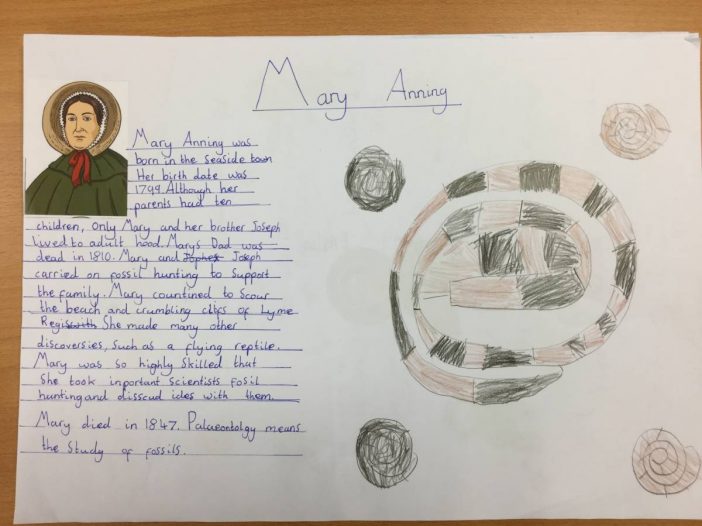 Mary Anning
Mary Anning was
born in the seaside town
Her birth date was
1799. Although her
parents had ten
children, only Mary and her brother Joseph
lived to adult hood. Marys Dad was
dead in 1810. Mary and Joseph
carried on fossil hunting to support
the family. Mary countined to scour
the beach and crumbling cliffs of Lyme
Regis She made many other
discoversies, such as a flying reptile.
Mary was so highly skilled that
She took inportant scientists fosil
hunting and disscud ides with them.
Mary died in 1847. Palaeontolgy means
the study of fossils.